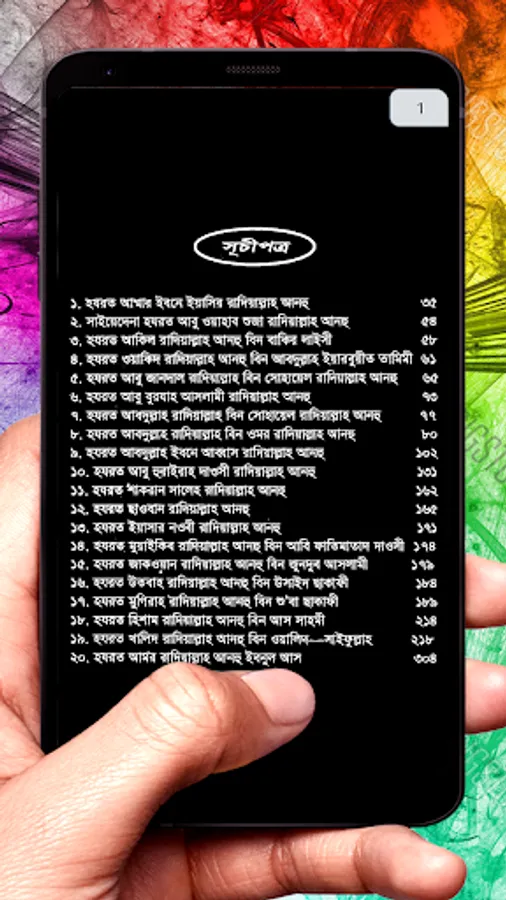 1
সূচীপত্র
১. হযরত আম্মার ইবনে ইয়াসির রাদিয়াল্লাহু আনহু ৩৫
২. সাইয়্যেদেনা হযরত আবু ওয়াহাব শুজা রাদিয়াল্লাহু আনহু ৫৪
৩. হযরত আকিল রাদিয়াল্লাহু আনহু বিন বাকির লাইসী ৫৮
৪. হযরত ওয়াকিদ রাদিয়াল্লাহু আনহু বিন আবদুল্লাহ ইয়ারবুয়ীত তামিমী ৬১
৫. হযরত আবু জানদাল রাদিয়াল্লাহু বিন সোহায়েল রাদিয়াল্লাহু আনহু ৬৫
৬. হযরত আবু বুরযাহ আসলামী রাদিয়াল্লাহু আনহু ৭৩
৭. হযরত আবদুল্লাহ রাদিয়াল্লাহু বিন সোহায়েল রাদিয়াল্লাহু আনহু ৭৭
৮. হযরত আবদুল্লাহ রাদিয়াল্লাহু বিন ওমর রাদিয়াল্লাহু আনহু ৮০
৯. হযরত আবদুল্লাহ ইবনে আব্বাস রাদিয়াল্লাহু আনহু ১০২
১০. হযরত আবু হুরাইরাহ দাওসী রাদিয়াল্লাহু আনহু ১৩১
১১. হযরত শাকরান সালেহ রাদিয়াল্লাহু আনহু ১৬২
১২. হযরত ছাওবান রাদিয়াল্লাহু আনহু ১৬৫
১৩. হযরত ইয়াসার নওবী রাদিয়াল্লাহু আনহু ১৭১
১৪. হযরত মুয়াইকিব রাদিয়াল্লাহু আনহু বিন আবি ফাতিমাতাদ দাওসী ১৭৪
১৫. হযরত জাকওয়ান রাদিয়াল্লাহু আনহু বিন জুনদুব আসলামী ১৭৯
১৬. হযরত উতবাহ রাদিয়াল্লাহু আনহু বিন উসাইদ ছাকাফী ১৮৪
১৭. হযরত মুগিরাহ রাদিয়াল্লাহু আনহু বিন শু'বা ছাকাফী ১৮৯
১৮. হযরত হিশাম রাদিয়াল্লাহু আনহু বিন আস সাহমী ২১৪
১৯. হযরত খালিদ রাদিয়াল্লাহু আনহু বিন ওয়ালিদ—সাইফুল্লাহ ২১৮
২০. হযরত আমর রাদিয়াল্লাহু আনহু ইবনুল আস ৩০৪